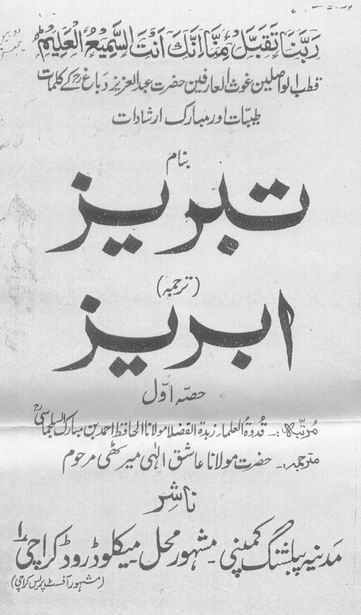 رَبَّنَا تَقَبَّلْ مِنَّا إِنَّكَ أَنْتَ السَّمِيعُ الْعَلِيمُ
قطب الواصلین غوث العارفین حضرت عبدالعزیز دباغ رح کے کلمات
طیبات اور مبارک ارشادات
بنام
تبریز
(ترجمہ)
ابریز
حصہ اوّل
مرتبہ:- قدوۃ العلماء زبدۃ الفضلا مولانا الحافظ احمد بن مبارک السلجماسی رح
مترجمہ:- حضرت مولانا عاشق الٰہی میرٹھی مرحوم
ناشر
مدینہ پبلشنگ کمپنی۔ مشہور محل۔ میکلوڈ روڈ کراچی
(مشہور آفسٹ پریس کراچی)